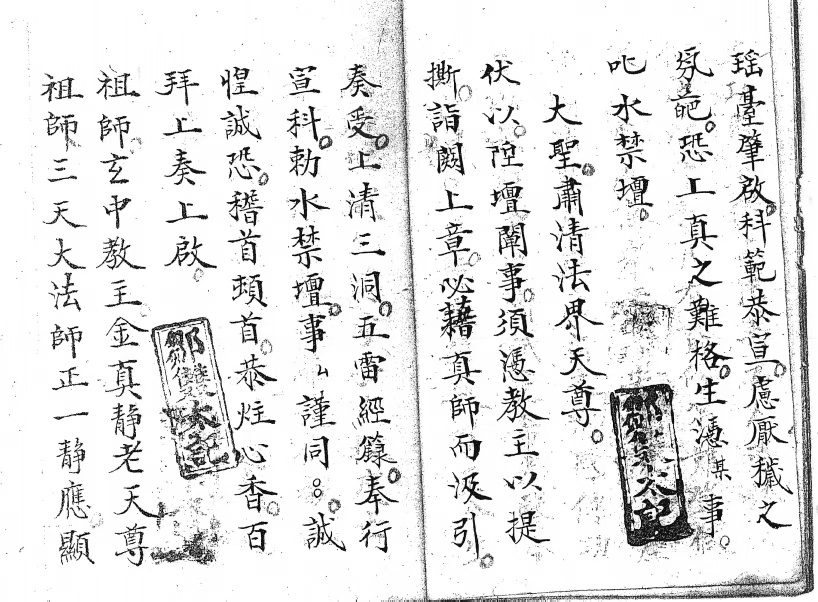 瑶臺肇啟。科範恭宣。慮厭穢之
氛䒱。恐上真之難格。生憑某事。
叱水禁壇。
大聖肅清法界天尊。
伏以。陞壇闡事。須憑教主以提
撕。詣闕上章。必藉真師而汲引。
奏受。上清三洞。五雷經籙。奉行
宣科。勅水禁壇。事厶謹同。誠
惶誠恐。稽首頓首。恭炷心香百
拜上奏上啟。
祖師玄中教主金真静老天尊
祖師三天大法師正一静應顯
鄧雙太記